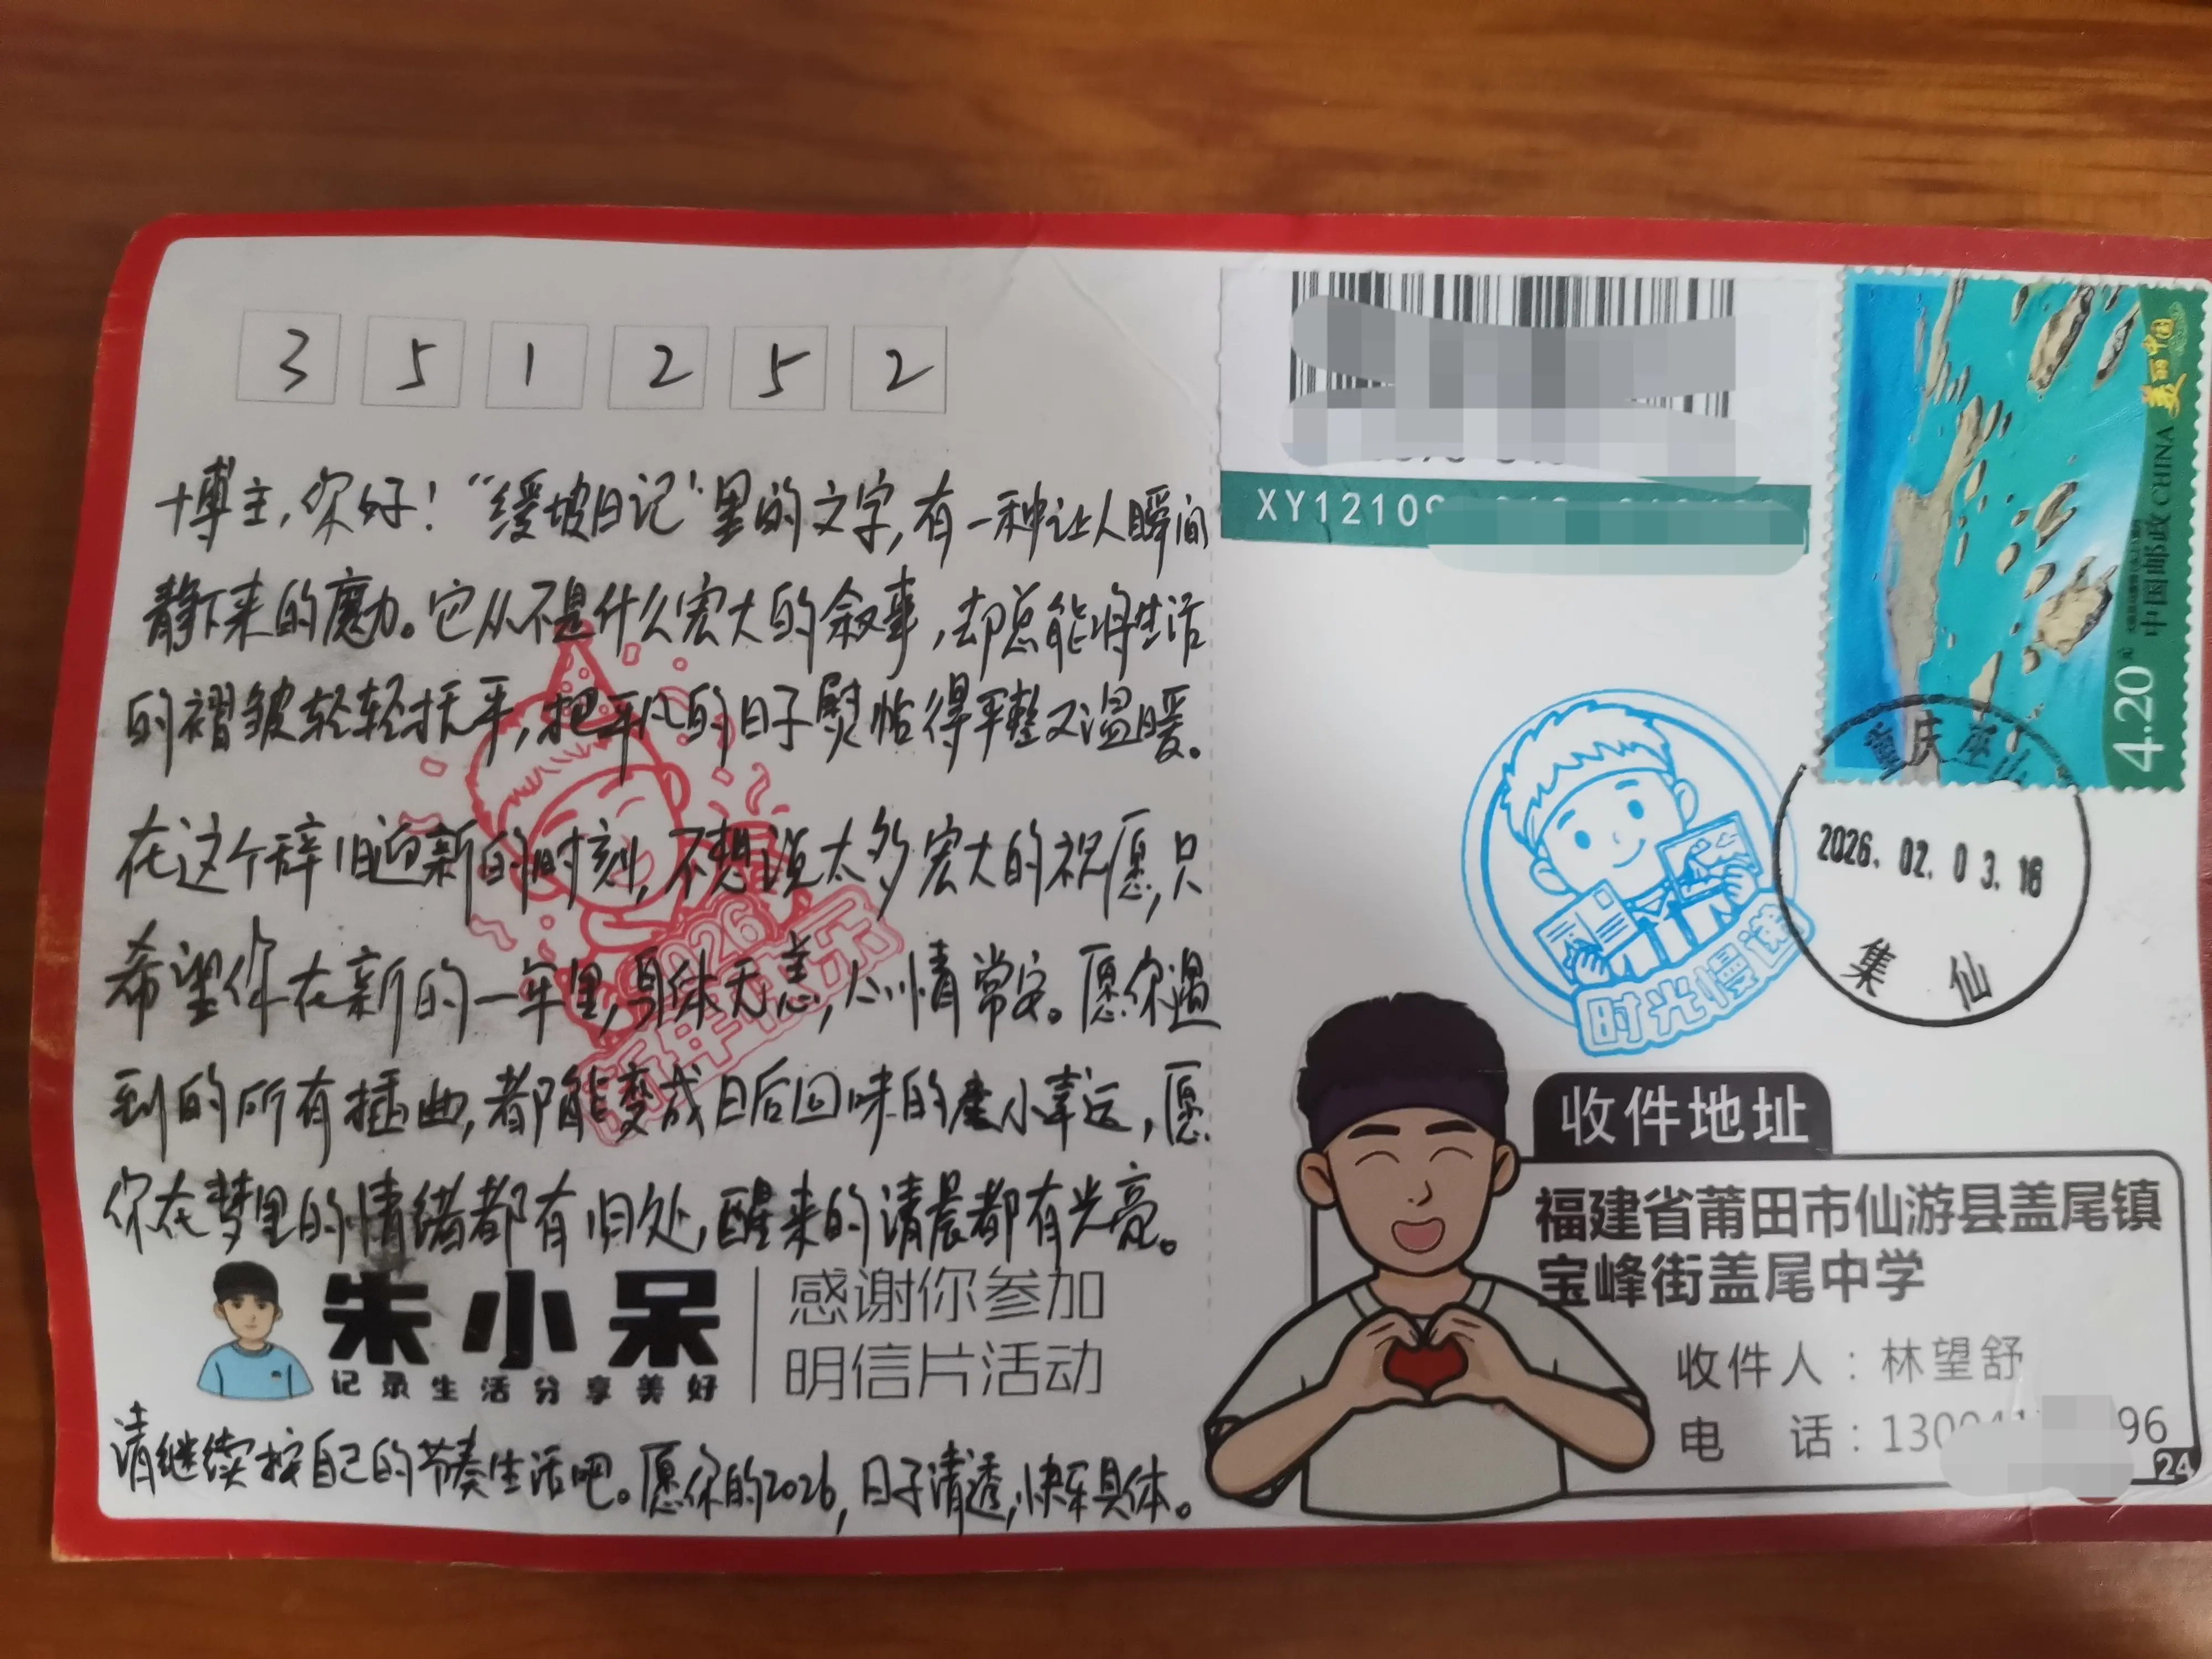 3 5 1 2 5 2
博主,你好!“缓坡日记”里的文字,有一种让人瞬间
静下来的魔力。它从不是什么宏大的叙事,却总能将生活
的褶皱轻轻抚平,把平凡的日子熨帖得平整又温暖。
在这个辞旧迎新的时刻,不想说太多宏大的祝愿,只
希望你在新的一年里,身体无恙,心情常安。愿你遇
到的所有插曲,都能变成日后回味的小幸运,愿
你在梦里的情绪都有归处,醒来的清晨都有光亮。
2026
新年快乐
朱小呆
记录生活分享美好
感谢你参加
明信片活动
请继续按自己的节奏生活吧。愿你的2026,日子清透,快乐具体。
XY12109
美丽中国
中国邮政 CHINA
4.20元
重庆巫山
2026.02.03.16
集仙
时光慢递
收件地址
福建省莆田市仙游县盖尾镇
宝峰街盖尾中学
收件人:林望舒
电 话:130 96
24